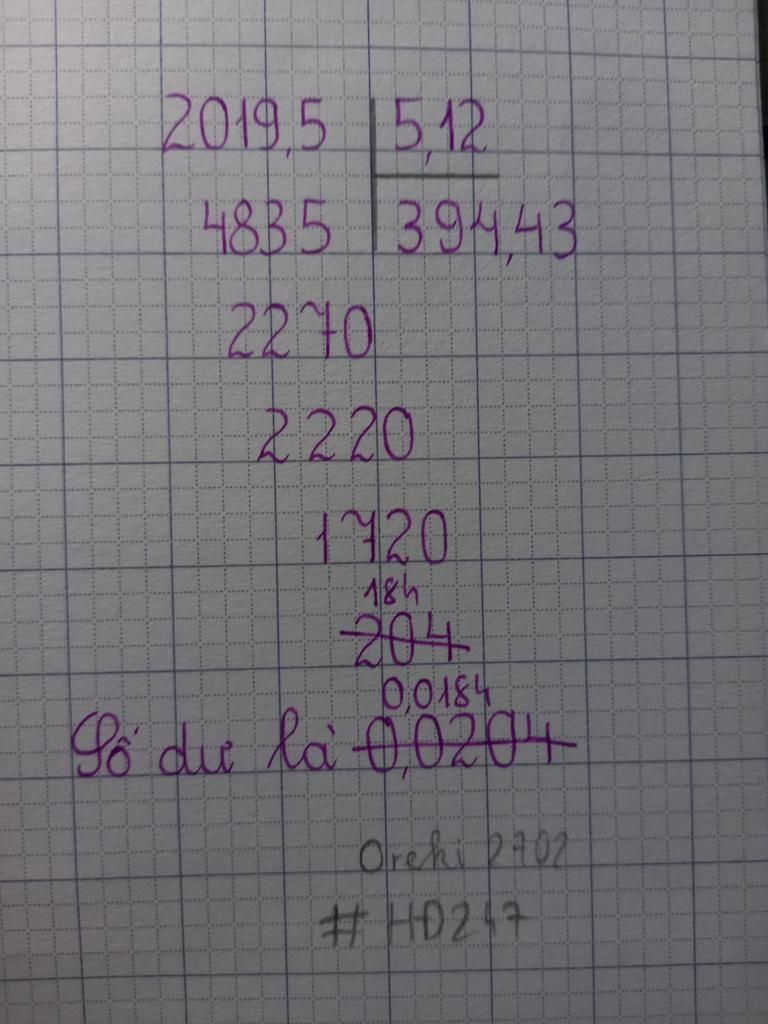 2019,5 5,12
4835 394,43
2270
2220
1720
184
204
0,0184
Số dư là 0,0204
Oreki 2702
#HD247